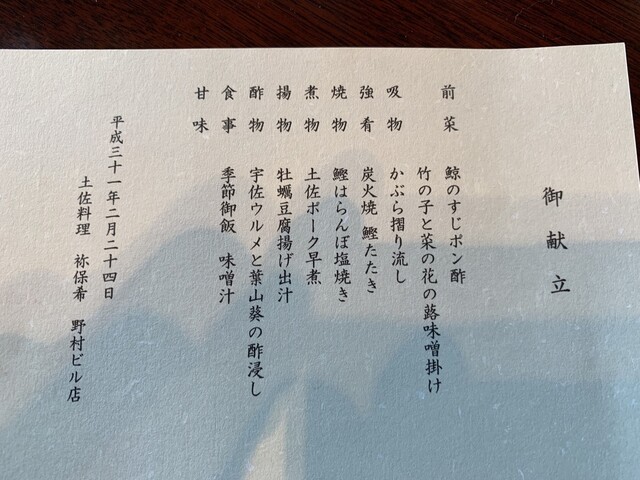 御献立
前菜 鯨のすじポン酢
竹の子と菜の花の蕗味噌掛け
吸物 かぶら摺り流し
強肴 炭火焼 鰹たたき
焼物 鰹はらんぼ塩焼き
煮物 土佐ポーク早煮
揚物 牡蠣豆腐揚げ出汁
酢物 宇佐ウルメと葉山葵の酢浸し
食事 季節御飯 味噌汁
甘味
平成三十一年二月二十四日
土佐料理 祢保希 野村ビル店